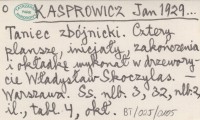 KASPROWICZ Jan 1929...
Taniec zbójnicki. Cztery
plansze, inicjały, zakończenia
i okładkę wykonał w drzewory-
cie Władysław Skoczylas. —
Warszawa. Ss. nlb. 3, 32, nlb. 2,
il., tabl. 4, okł.